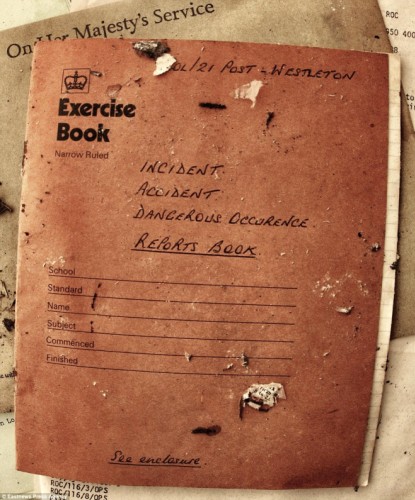 On Her Majesty's Service
ROC
950 400
21 POST - WESTLETON
Exercise
Book
Narrow Ruled
INCIDENT.
ACCIDENT.
DANGEROUS OCCURENCE.
REPORTS BOOK.
School
Standard
Name
Subject
Commenced
Finished
See enclosure.
ROC/116/3/OPS
ROC/116/8/OPS